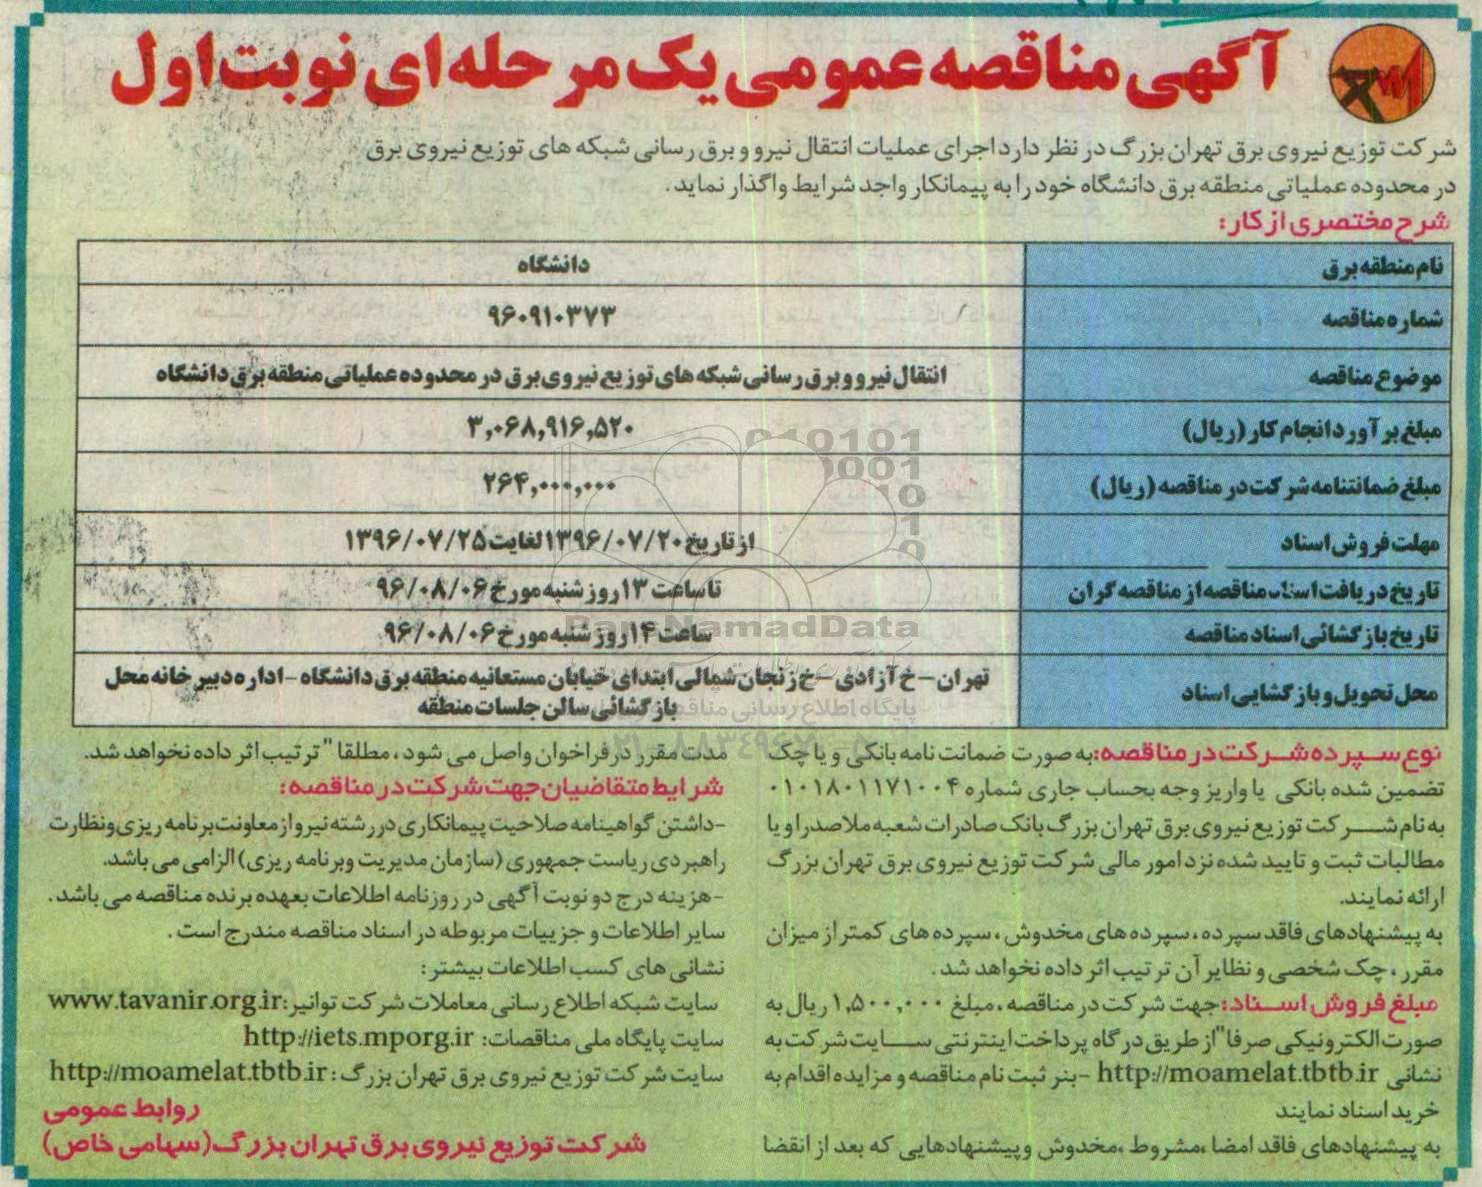 آگهی مناقصه عمومی یک مرحله ای نوبت اول
شرکت توزیع نیروی برق تهران بزرگ در نظر دارد اجرای عملیات انتقال نیرو و برق رسانی شبکه های توزیع نیروی برق
در محدوده عملیاتی منطقه برق دانشگاه خود را به پیمانکار واجد شرایط واگذار نماید.
شرح مختصری از کار:
نام منطقه برق دانشگاه
شماره مناقصه ۹۶۰۹۱۰۳۷۳
موضوع مناقصه انتقال نیرو و برق رسانی شبکه های توزیع نیروی برق در محدوده عملیاتی منطقه برق دانشگاه
مبلغ برآورد انجام کار (ریال) ۳,۰۶۸,۹۱۶,۵۲۰
مبلغ ضمانتنامه شرکت در مناقصه (ریال) ۲۶۴,۰۰۰,۰۰۰
مهلت فروش اسناد از تاریخ ۱۳۹۶/۰۷/۲۰ لغایت ۱۳۹۶/۰۷/۲۵
تاریخ دریافت اسناد مناقصه از مناقصه گران تا ساعت ۱۳ روز شنبه مورخ ۹۶/۰۸/۰۶
تاریخ بازگشائی اسناد مناقصه ساعت ۱۴ روز شنبه مورخ ۹۶/۰۸/۰۶
محل تحویل و بازگشایی اسناد تهران – خ آزادی – خ زنجان شمالی ابتدای خیابان مستعانیه منطقه برق دانشگاه – اداره دبیر خانه محل
بازگشائی سالن جلسات منطقه
نوع سپرده شرکت در مناقصه: به صورت ضمانت نامه بانکی و یا چک
تضمین شده بانکی یا واریز وجه بحساب جاری شماره ۰۱۰۱۸۰۱۱۷۱۰۰۴
به نام شرکت توزیع نیروی برق تهران بزرگ بانک صادرات شعبه ملاصدرا و یا
مطالبات ثبت و تایید شده نزد امور مالی شرکت توزیع نیروی برق تهران بزرگ
ارائه نمایند.
به پیشنهادهای فاقد سپرده، سپرده های مخدوش، سپرده های کمتر از میزان
مقرر، چک شخصی و نظایر آن ترتیب اثر داده نخواهد شد.
مبلغ فروش اسناد: جهت شرکت در مناقصه، مبلغ ۱,۵۰۰,۰۰۰ ریال به
صورت الکترونیکی صرفا" از طریق درگاه پرداخت اینترنتی سایت شرکت به
نشانی http://moamelat.tbtb.ir -بنر ثبت نام مناقصه و مزایده اقدام به
خرید اسناد نمایند
به پیشنهادهای فاقد امضا، مشروط، مخدوش و پیشنهادهایی که بعد از انقضا
مدت مقرر در فراخوان واصل می شود، مطلقا" ترتیب اثر داده نخواهد شد.
شرایط متقاضیان جهت شرکت در مناقصه:
-داشتن گواهینامه صلاحیت پیمانکاری در رشته نیرو از معاونت برنامه ریزی و نظارت
راهبردی ریاست جمهوری (سازمان مدیریت وبرنامه ریزی) الزامی می باشد.
-هزینه درج دو نوبت آگهی در روزنامه اطلاعات بعهده برنده مناقصه می باشد.
سایر اطلاعات و جزییات مربوطه در اسناد مناقصه مندرج است.
نشانی های کسب اطلاعات بیشتر:
سایت شبکه اطلاع رسانی معاملات شرکت توانیر: www.tavanir.org.ir
سایت پایگاه ملی مناقصات: http://iets.mporg.ir
سایت شرکت توزیع نیروی برق تهران بزرگ: http://moamelat.tbtb.ir
روابط عمومی
شرکت توزیع نیروی برق تهران بزرگ (سهامی خاص)